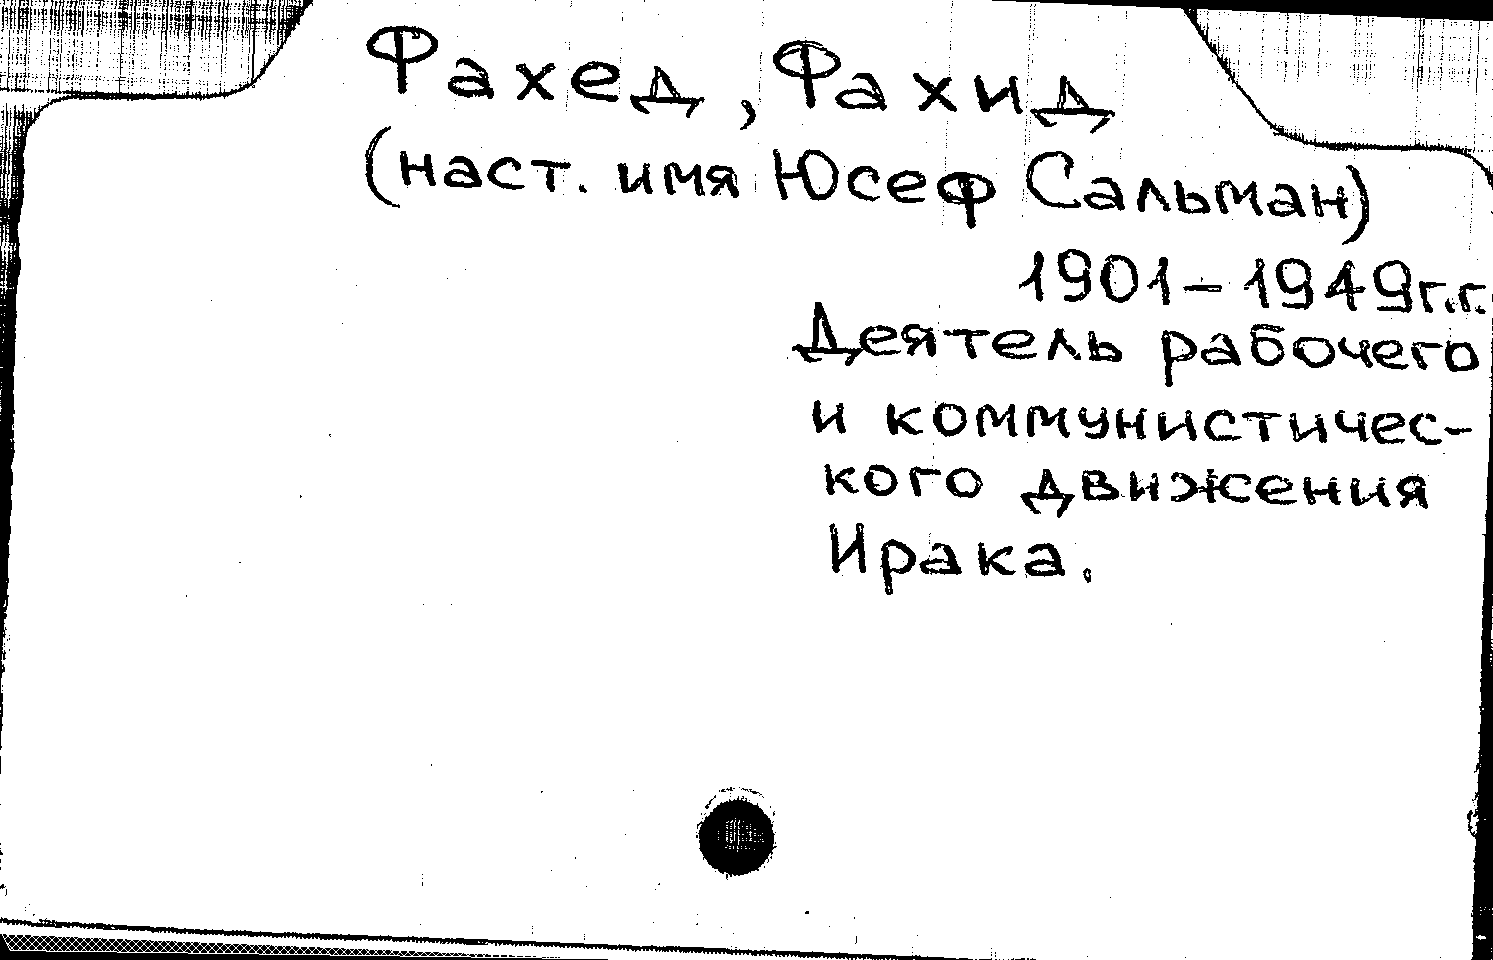 Фахед, Фахид
(наст. имя Юсеф Сальман)
1901-1949г.г.
Деятель рабочего
и коммунистичес-
кого движения
Ирака.